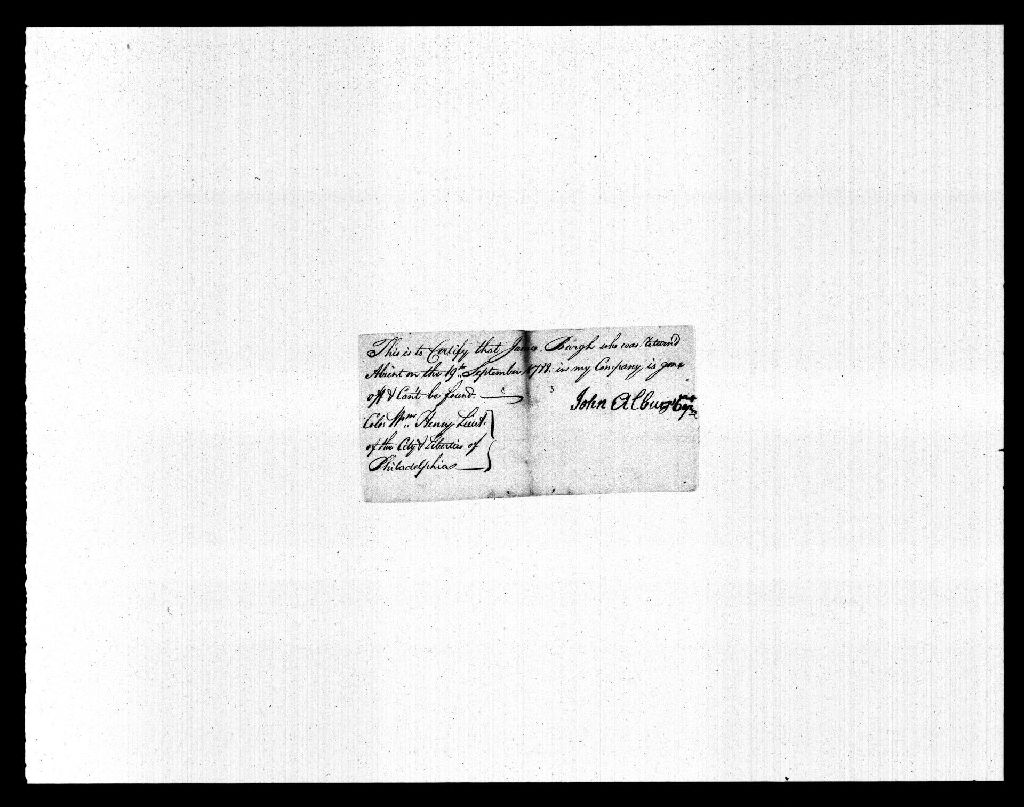 This is to Certify that James Burgh who was Returnd
Absent on the 19th September 1778 in my Company is gone
off & Can't be found.
John Alburt Capn
Colo Wm Henny Lieut.
of the City & Liberties of
Philadelphia